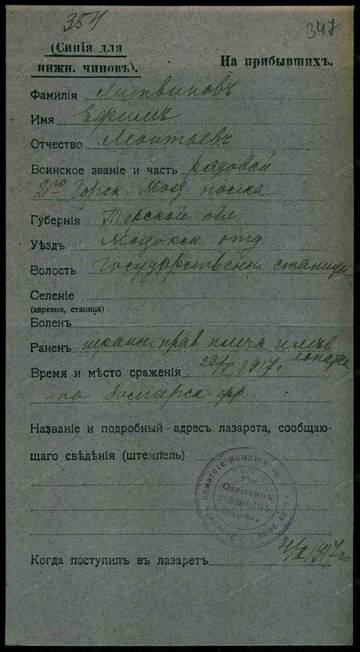 354
347
(Синія для
нижн. чиновъ).
На прибывшихъ.
Фамилія Литвиновъ
Имя Ефимъ
Отчество
Воинское званіе и часть рядовой
2го Горск. Мозд полка
Губернія Терской обл
Уѣздъ Моздокск отд
Волость Государственн станица
Селеніе
(деревня, станица)
Боленъ
Раненъ прав плеча и лѣв
лопатк
Время и мѣсто сраженія 1917 г
на фр.
Названіе и подробный адресъ лазарета, сообщаю-
щаго свѣдѣнія (штемпель)
Когда поступилъ въ лазаретъ 1917 г